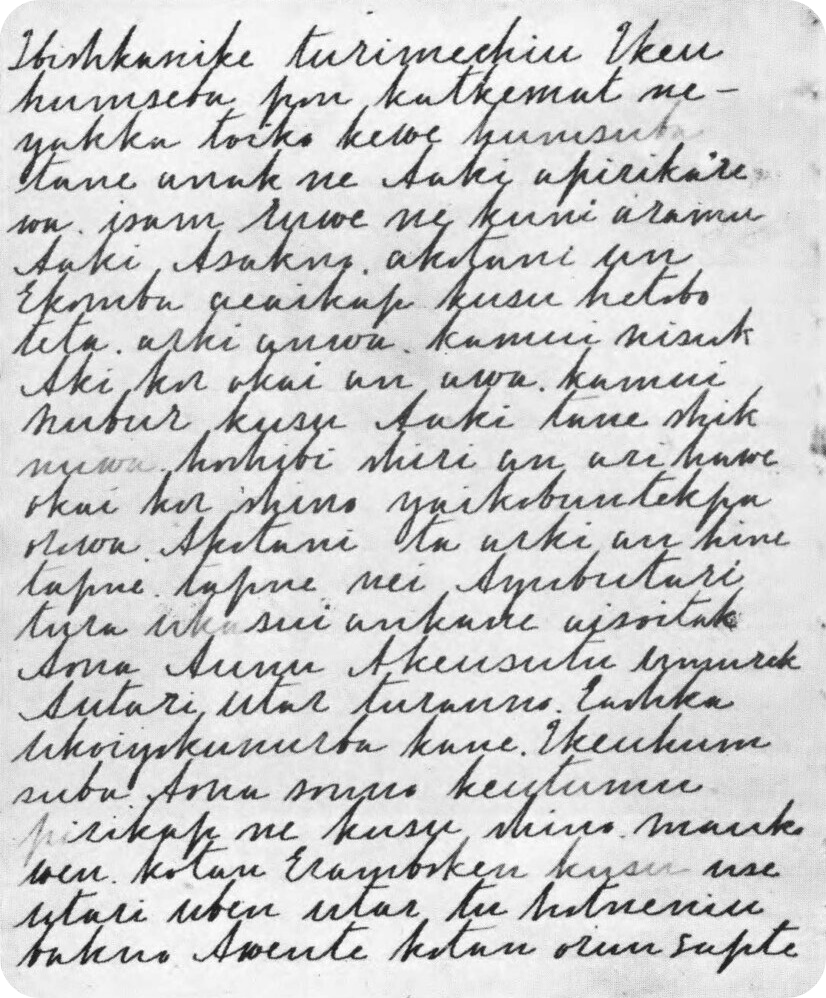 Ibishkanike turimechiu Ikeu
humseba pon katkemat ne-
yakka toiko kewe humsuba
tane anak ne Aaki apirikare
wa. isam ruwe ne kuni aramu
Aaki Asakno. akotani un
Ekomba aeaikap kusu hetobo
teta. arki anwa. kamui nisuk
Aki kor okai an awa. kamui
nubur kusu Aaki tane shik
nuwa. hoshibi shiri an ari hawe
okai kor shino yaikobuntekpa
orowa. Akotani ta arki an hine
tapne tapne nei Ayubutari
tura ukasui ankane aisoitak
Aona Aunu Akeusutu umurek
Autari Utar turanno. Eashka
Ukoiyokunurba kane. Ikeuhum
suba Aona sonno keutumu
pirikap ne kusu shino. mauko
wen. kotan Eramboken kusu use
utari uben utar tu hotneniu
bakno Awente kotan orun sapte